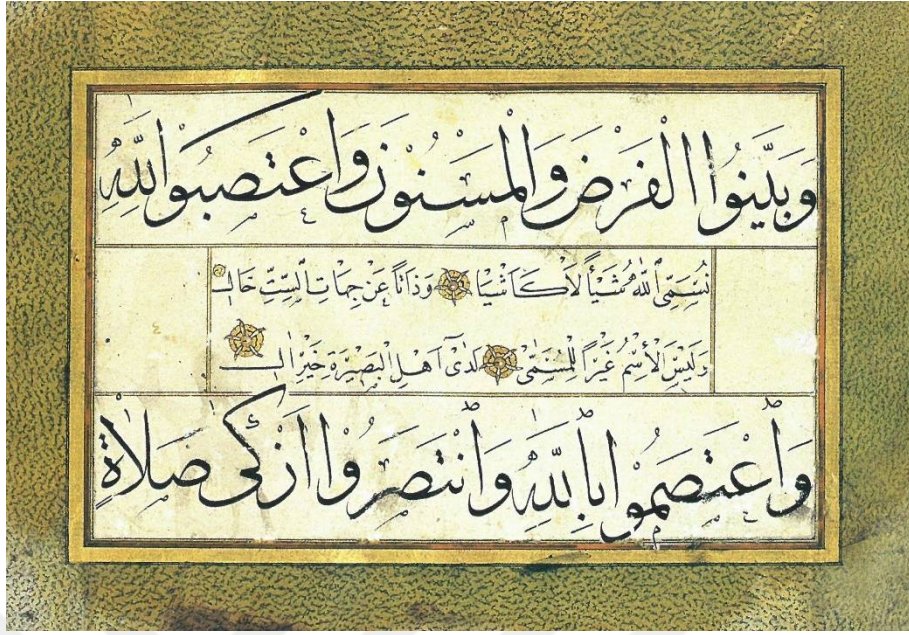 وَبَيَّنُوا الْفَرْضَ وَالْمَسْنُونَ وَاعْتَصَبُوا لِلّٰهِ
نُسَمِّى اللّٰهَ شَيْأً لَا كَاَشْيَا وَذَاتًا عَنْ جِهَاتِ السِّتِّ خَالِ
وَلَيْسَ الْاِسْمُ غَيْرًا لِلْمُسَمّٰى لَدٰى اَهْلِ الْبَصِيرَةِ خَيْرِ اٰلِ
وَاعْتَصَمُوا بِاللّٰهِ وَانْتَصَرُوا اَزْكٰى صَلَاةٍ